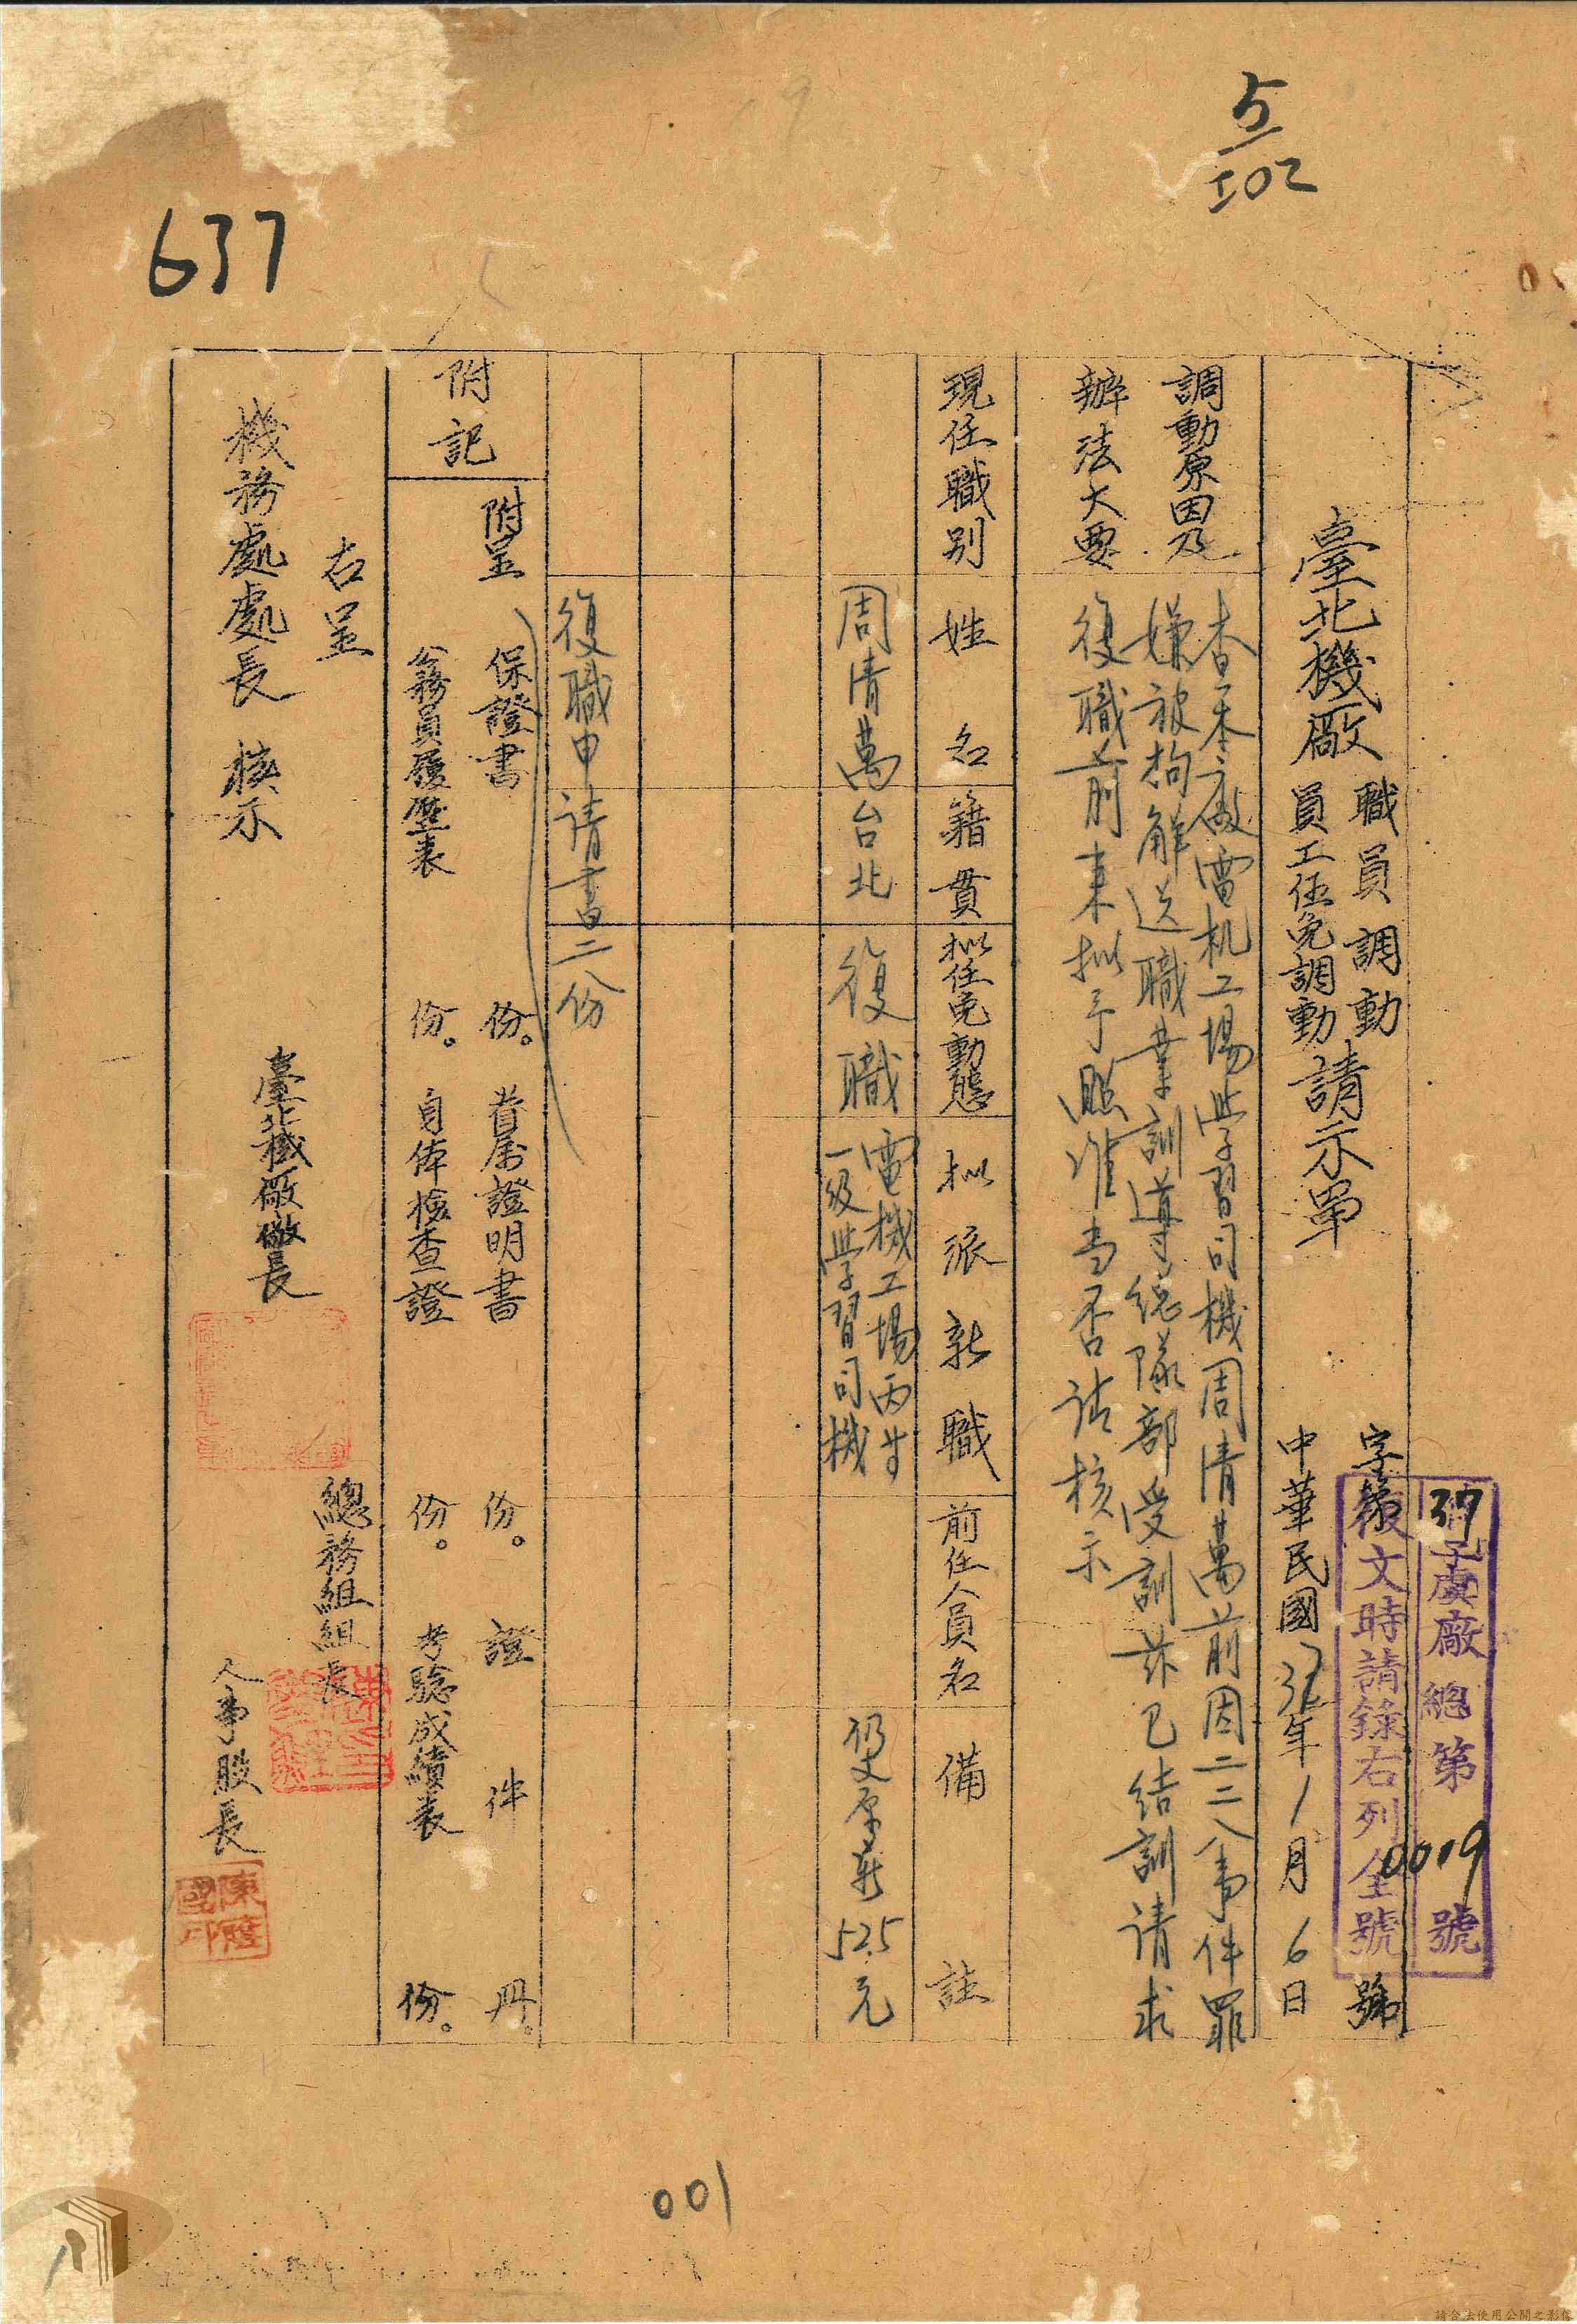 5/102
637
37
子虞廠總第0019號
復文時請錄右列全號
字第 號
臺北機廠
職員調動
員工任免調動
請示單
中華民國37年1月6日
調動原因及
辦法大要
查本廠電机工場学習司機周清萬前因二二八事件罪
嫌被拘解送職業訓導總隊部受訓茲已結訓请求
復職前来拟予照准当否请核示
現任職別
姓名
籍貫
拟任免動態
拟派新職
前任人員名
備註
周清萬
台北
復職
電機工場丙等
一級学習司機
仍支原薪525元
復職申请書二份
附記
附呈
保證書 份。
眷屬證明書 份。
證件 册。
公務員履歷表 份。
身体檢查證 份。
考驗成績表 份。
右呈
機務處處長 核示
臺北機廠廠長
總務組組長
人事股長
001
請合法使用公開之影像